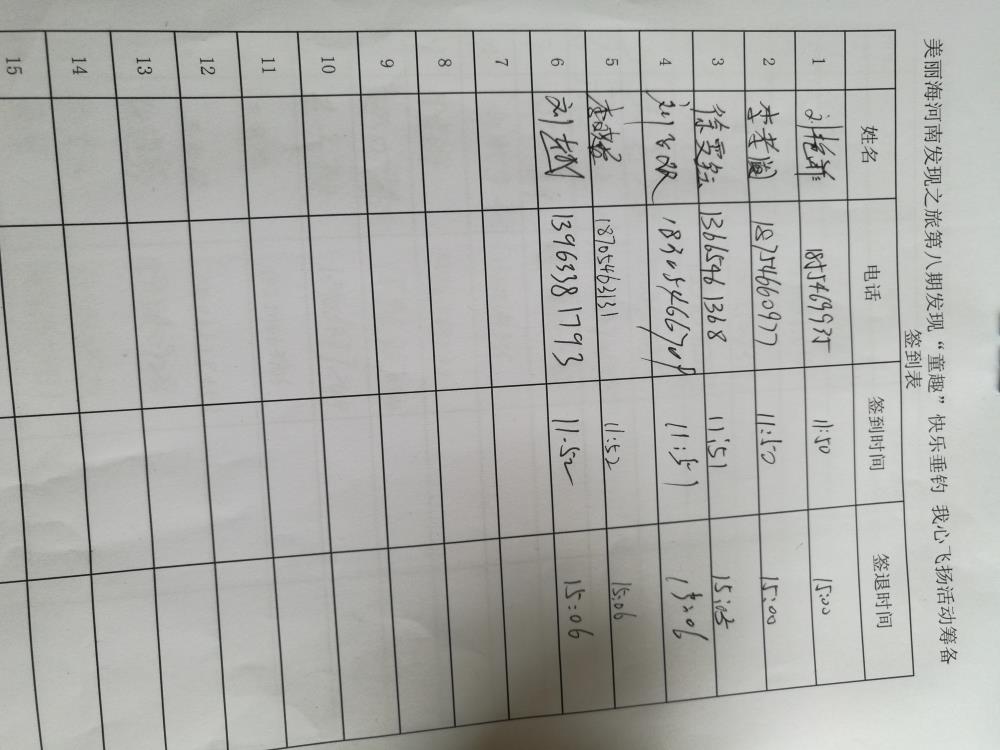 美丽海河南发现之旅第八期发现“童趣”快乐垂钓 我心飞扬活动筹备
签到表
姓名 电话 签到时间 签退时间
1 18554699935 11:50 15:00
2 李芳阁 18754660977 11:50 15:00
3 徐雪芸 13665461368 11:51 15:05
4 11:51 15:06
5 18705463131 11:52 15:06
6 13963381793 11:52 15:06
7
8
9
10
11
12
13
14
15